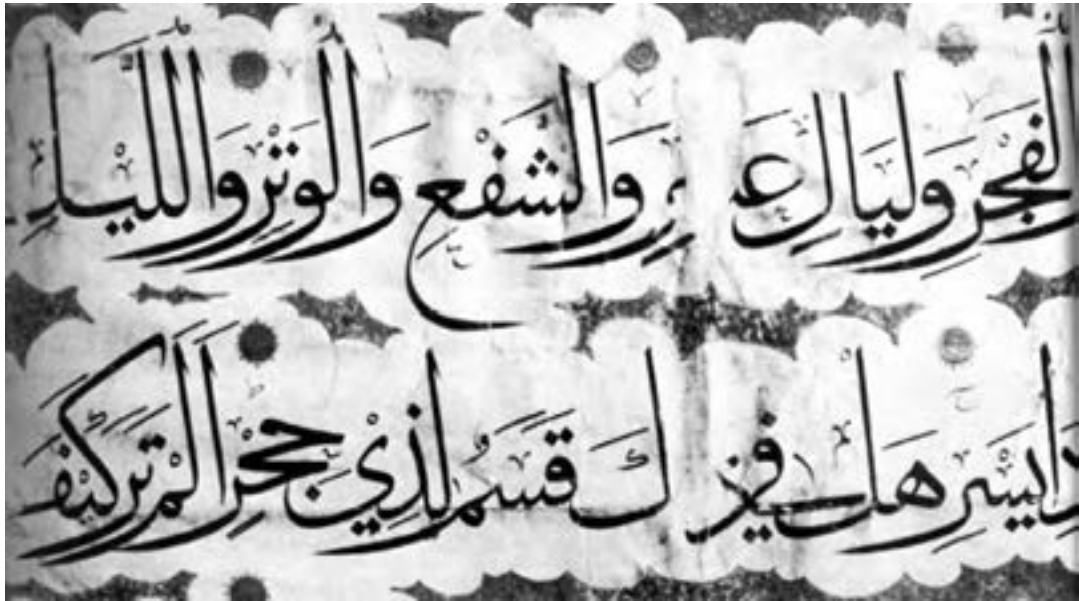 الفَجْرِ وَلَيَالٍ عَشْرٍ وَالشَّفْعِ وَالْوَتْرِ وَاللَّيْلِ
اِذَا يَسْرِ هَلْ فِي ذٰلِكَ قَسَمٌ لِذِيْ حِجْرٍ اَلَمْ تَرَ كَيْفَ